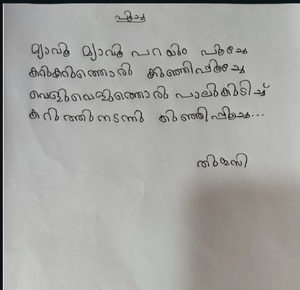 പൂച്ച
മ്യാവൂ മ്യാവൂ പറയും പൂച്ചേ
കറുകറുത്തൊരു കുഞ്ഞിപ്പൂച്ചേ
വെളുവെളുത്തൊരു പാലുകുടിച്ച്
കറുത്തിനടന്നു കുഞ്ഞിപ്പൂച്ച...
തുളസി